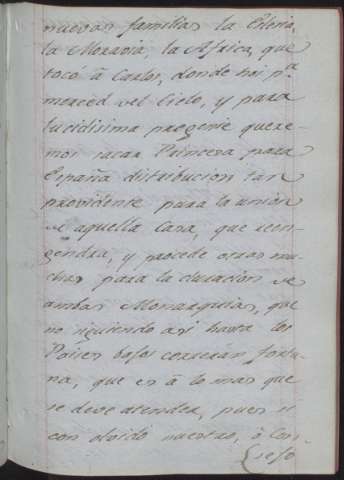 nuevas familias la Ethria,
la Moravia, la Africa, que
tocó â Carlos, donde hoi p.ª
merced del Cielo, y para
lucidisima progenie quere-
mos sacar Princesa para
España distribucion tan
providente para la union
de aquella Casa, que reen-
gendra, y procede otras mu-
chas para la duracion de
ambas Monarquias, que
no siguiendo asi hasta los
Paises bajos correràn fortu-
na, que es â lo mas que
se deve atender, pues si
con olvido nuestro, ò Con-
sejo